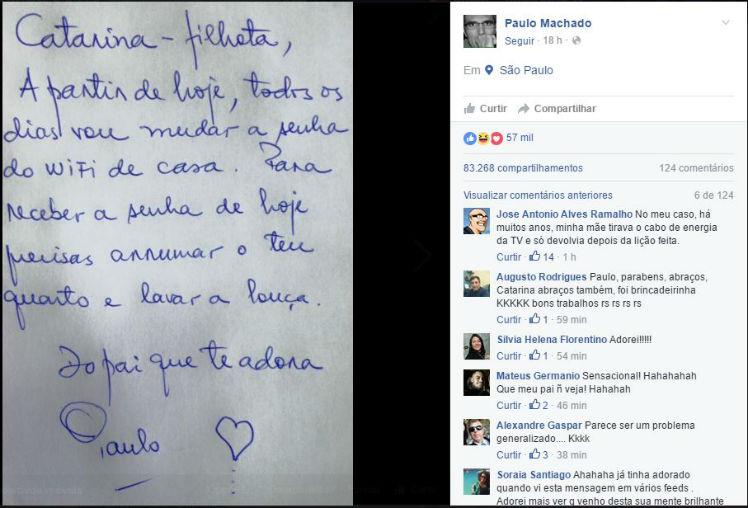 Catarina - filhota,
A partir de hoje, todos os
dias vou mudar a senha
do WiFi de casa. Para
receber a senha de hoje
precisas arrumar o teu
quarto e lavar a louça.
Do pai que te adora
Paulo
Paulo Machado
Seguir · 18 h ·
Em São Paulo
Curtir Compartilhar
57 mil
83.268 compartilhamentos 124 comentários
Visualizar comentários anteriores 6 de 124
Jose Antonio Alves Ramalho No meu caso, há
muitos anos, minha mãe tirava o cabo de energia
da TV e só devolvia depois da lição feita.
Curtir · 14 · 1 h
Augusto Rodrigues Paulo, parabens, abraços,
Catarina abraços também, foi brincadeirinha
KKKKK bons trabalhos rs rs rs rs
Curtir · 1 · 59 min
Silvia Helena Florentino Adorei!!!!!
Curtir · 1 · 54 min
Mateus Germanio Sensacional! Hahahahah
Que meu pai ñ veja! Hahahah
Curtir · 2 · 46 min
Alexandre Gaspar Parece ser um problema
generalizado.... Kkkk
Curtir · 3 · 38 min
Soraia Santiago Ahahaha já tinha adorado
quando vi esta mensagem em vários feeds .
Adorei mais ver q venho desta sua mente brilhante